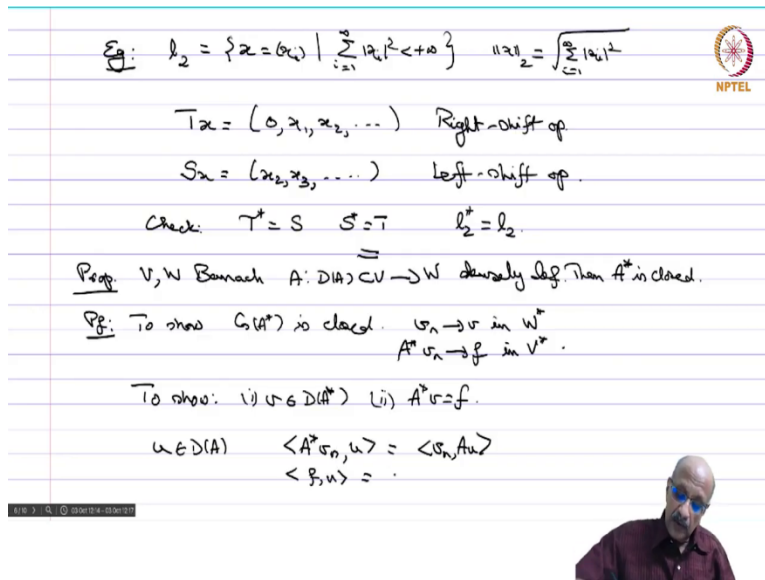 Eg: l₂ = {x = (xᵢ) | ∑_{i=1}^{∞} |xᵢ|² < +∞} ‖x‖₂ = √(∑_{i=1}^{∞} |xᵢ|²)
NPTEL
Tx = (0, x₁, x₂, ...) Right-shift op.
Sx = (x₂, x₃, ....) Left-shift op.
Check: T* = S S* = T l₂* = l₂.
Prop. V, W Banach A: D(A) ⊂ V → W densely def. Then A* is closed.
Pf: To show G(A*) is closed. vₙ → v in W*
A* vₙ → f in V*.
To show: (i) v ∈ D(A*) (ii) A* v = f.
u ∈ D(A) <A* vₙ, u> = <vₙ, Au>
<f, u> =
6/10 03 Oct 12:14 - 03 Oct 12:17